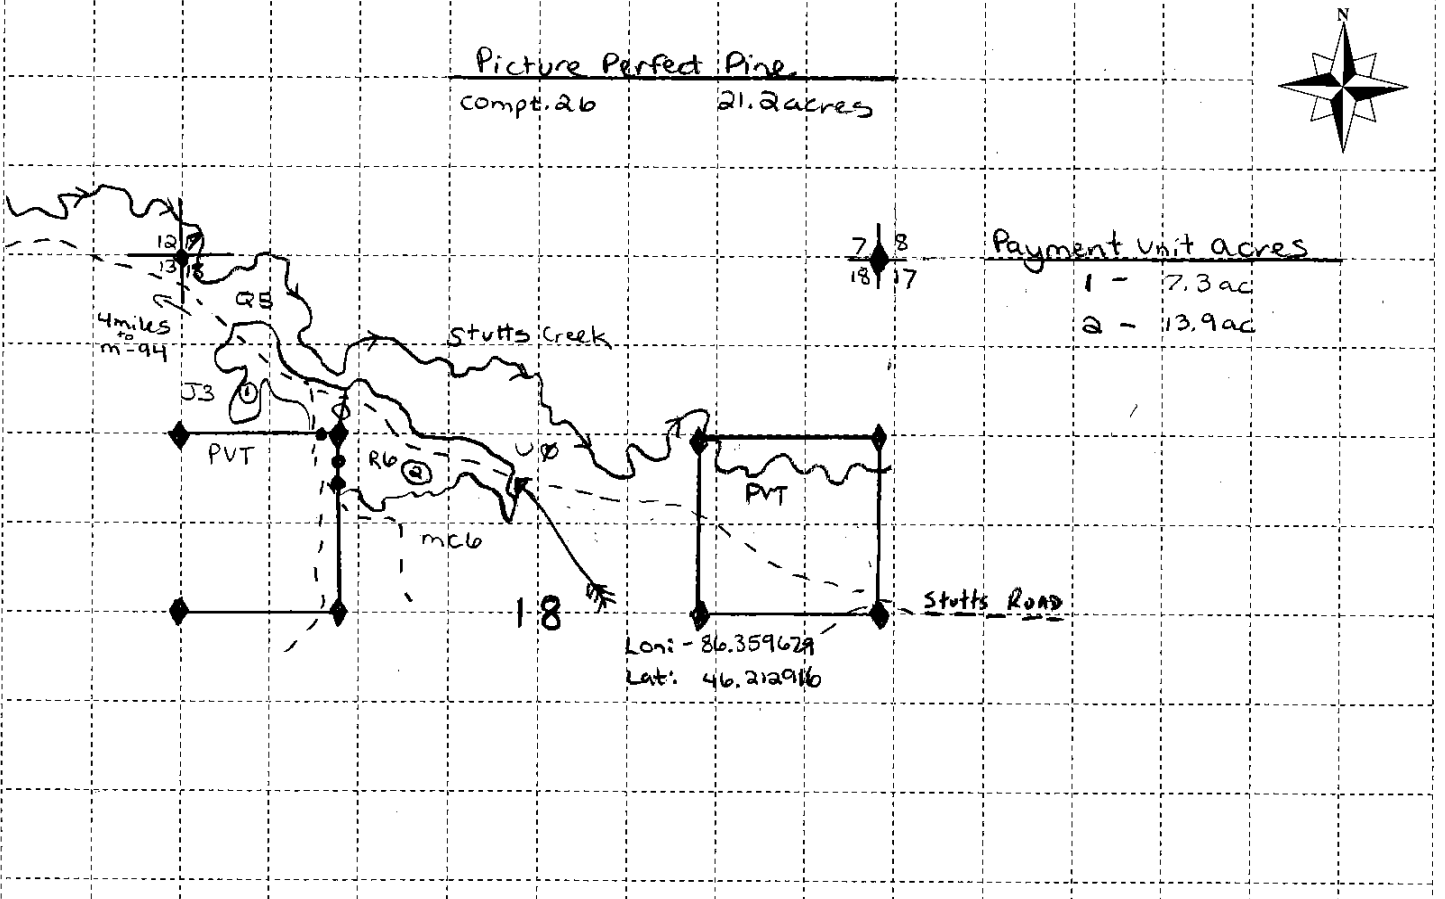 N
Picture Perfect Pine
Compt. 26 21.2 acres
12 7
13 18
7 8
18 17
Payment Unit acres
1 - 7.3 ac
2 - 13.9 ac
Q5
4 miles
to
m-94
Stutts Creek
J3
1
PVT
R6
2
U0
PVT
mc6
18
Stutts Road
Lon: -86.359629
Lat: 46.212916